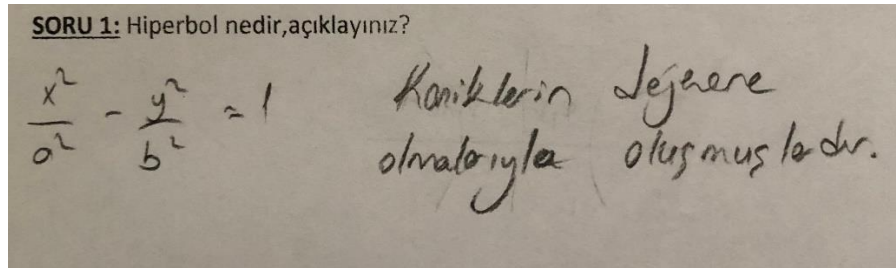 SORU 1: Hiperbol nedir,açıklayınız?
x²/a² - y²/b² = 1
Koniklerin dejenere
olmalarıyla oluşmuşlardır.